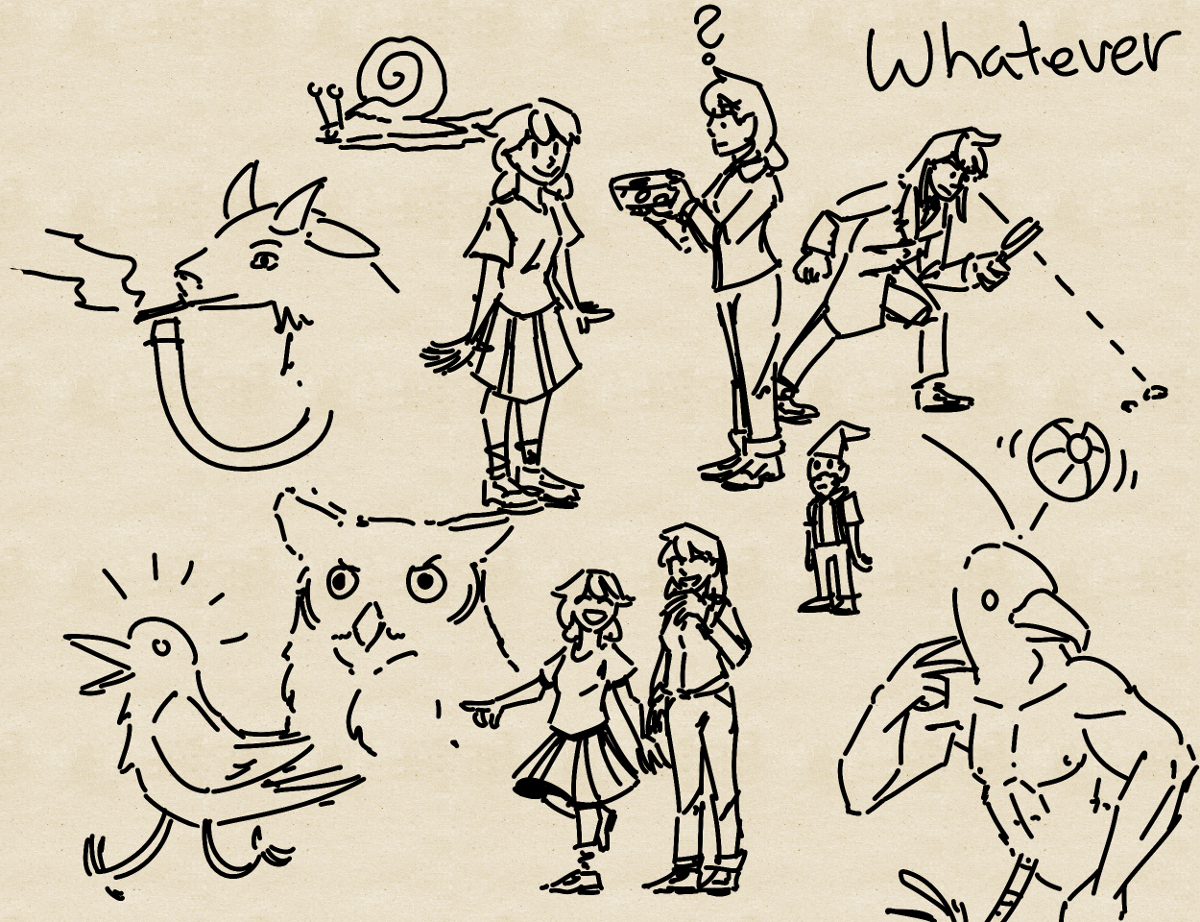 ?
Whatever